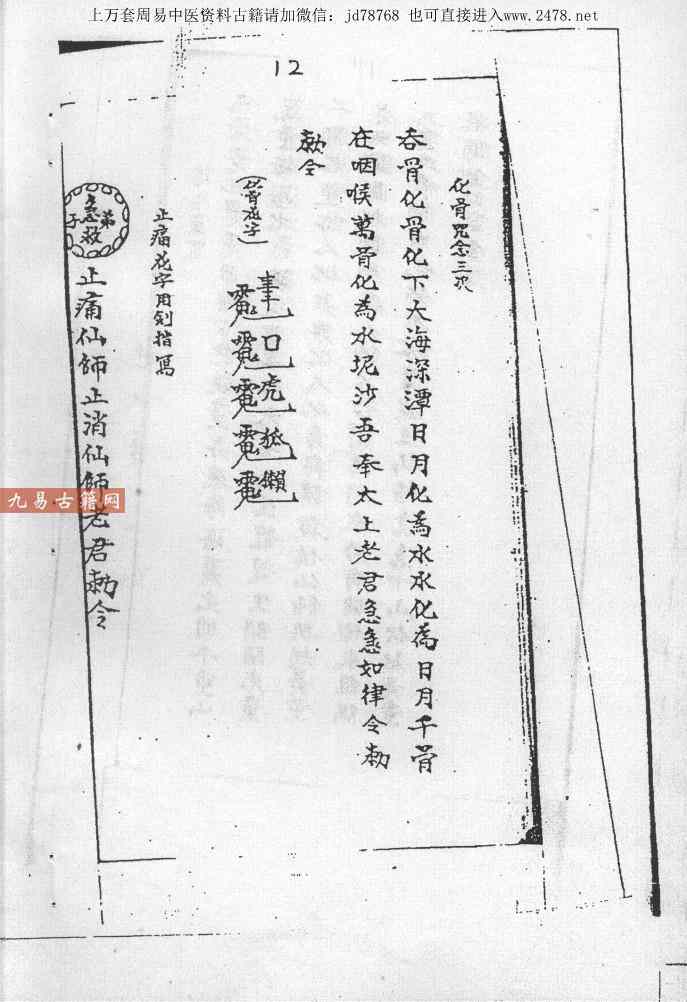 上万套周易中医资料古籍请加微信：jd78768 也可直接进入www.2478.net
12
化骨咒念三次
吞骨化骨化下大海深潭日月化為水水化為日月千骨
在咽喉萬骨化為水坭沙吾奉太上老君急急如律令勅
勅令
(化骨花字)
口虎狐獺
止痛花字用剑指寫
弟子急救
止痛仙師止消仙師老君勅令
九易古籍网